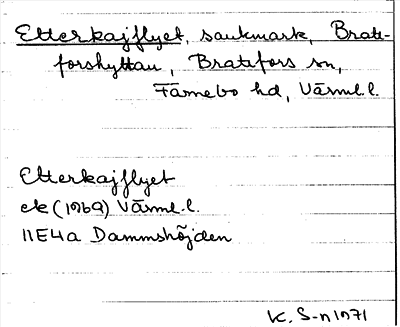 Etterkajflyet, sankmark, Bratt-
forshyttan, Brattfors sn,
Färnebo hd, Värml.l.
Etterkajflyet
ek (1969) Värml.l.
11E4a Dammshöjden
K. S-n 1971